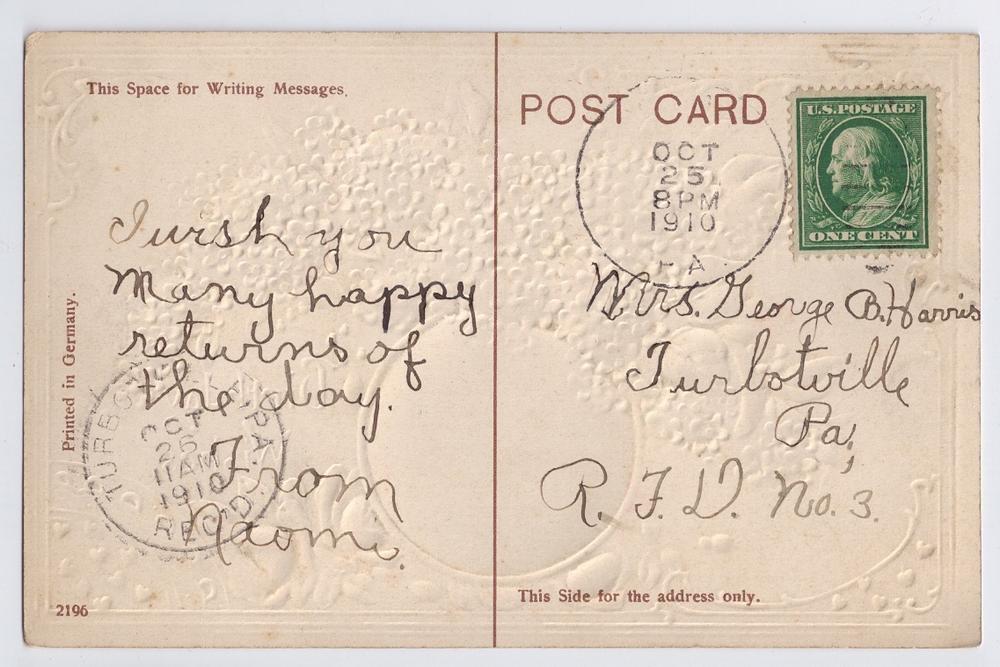 This Space for Writing Messages.
I wish you
Many happy
returns of
the day.
From
Naomi.
Printed in Germany.
TURBOTVILLE, PA.
OCT
26
11AM
1910
REC'D.
2196
POST CARD
OCT
25
8PM
1910
PA
U.S. POSTAGE
ONE CENT
Mrs. George B. Harris
Turbotville
Pa,
R. F. D. No. 3.
This Side for the address only.